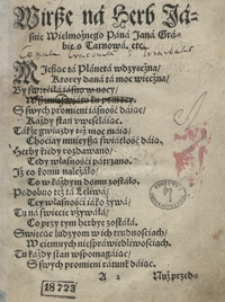 Wirße ná Herb Já-
śnie Wielmożnego Páná Janá Grá-
bie z Tarnowá, etc.
Miesiac tá Plánetá wdzyęcżna/
Ktorey daná tá moc wiecżna/
By świećiłá iásno w nocy/
S swych promieni iásność dáiąc/
Káżdy stan vweseláiąc.
Tákże gwiazdy też moc máią/
Choćiay mnieyßą świátłość dáią.
Herby kiedy rozdawano/
Tedy własności pátrzano.
Iż co komu należáło/
To w káżdym domu zostáło.
Podobno też tá Leliwá/
Tey własności iáko żywá/
Tu ná świecie vżywáłá/
Co przy tym herbye zostáłá.
Swiecąc ludzyom w ich trudnościách/
W ciemnych niespráwiedliwościách.
Tu káżdy stan wspomagáiąc/
S swych promieni rátunk dáiąc.
A 2 Nuż przed-
18723